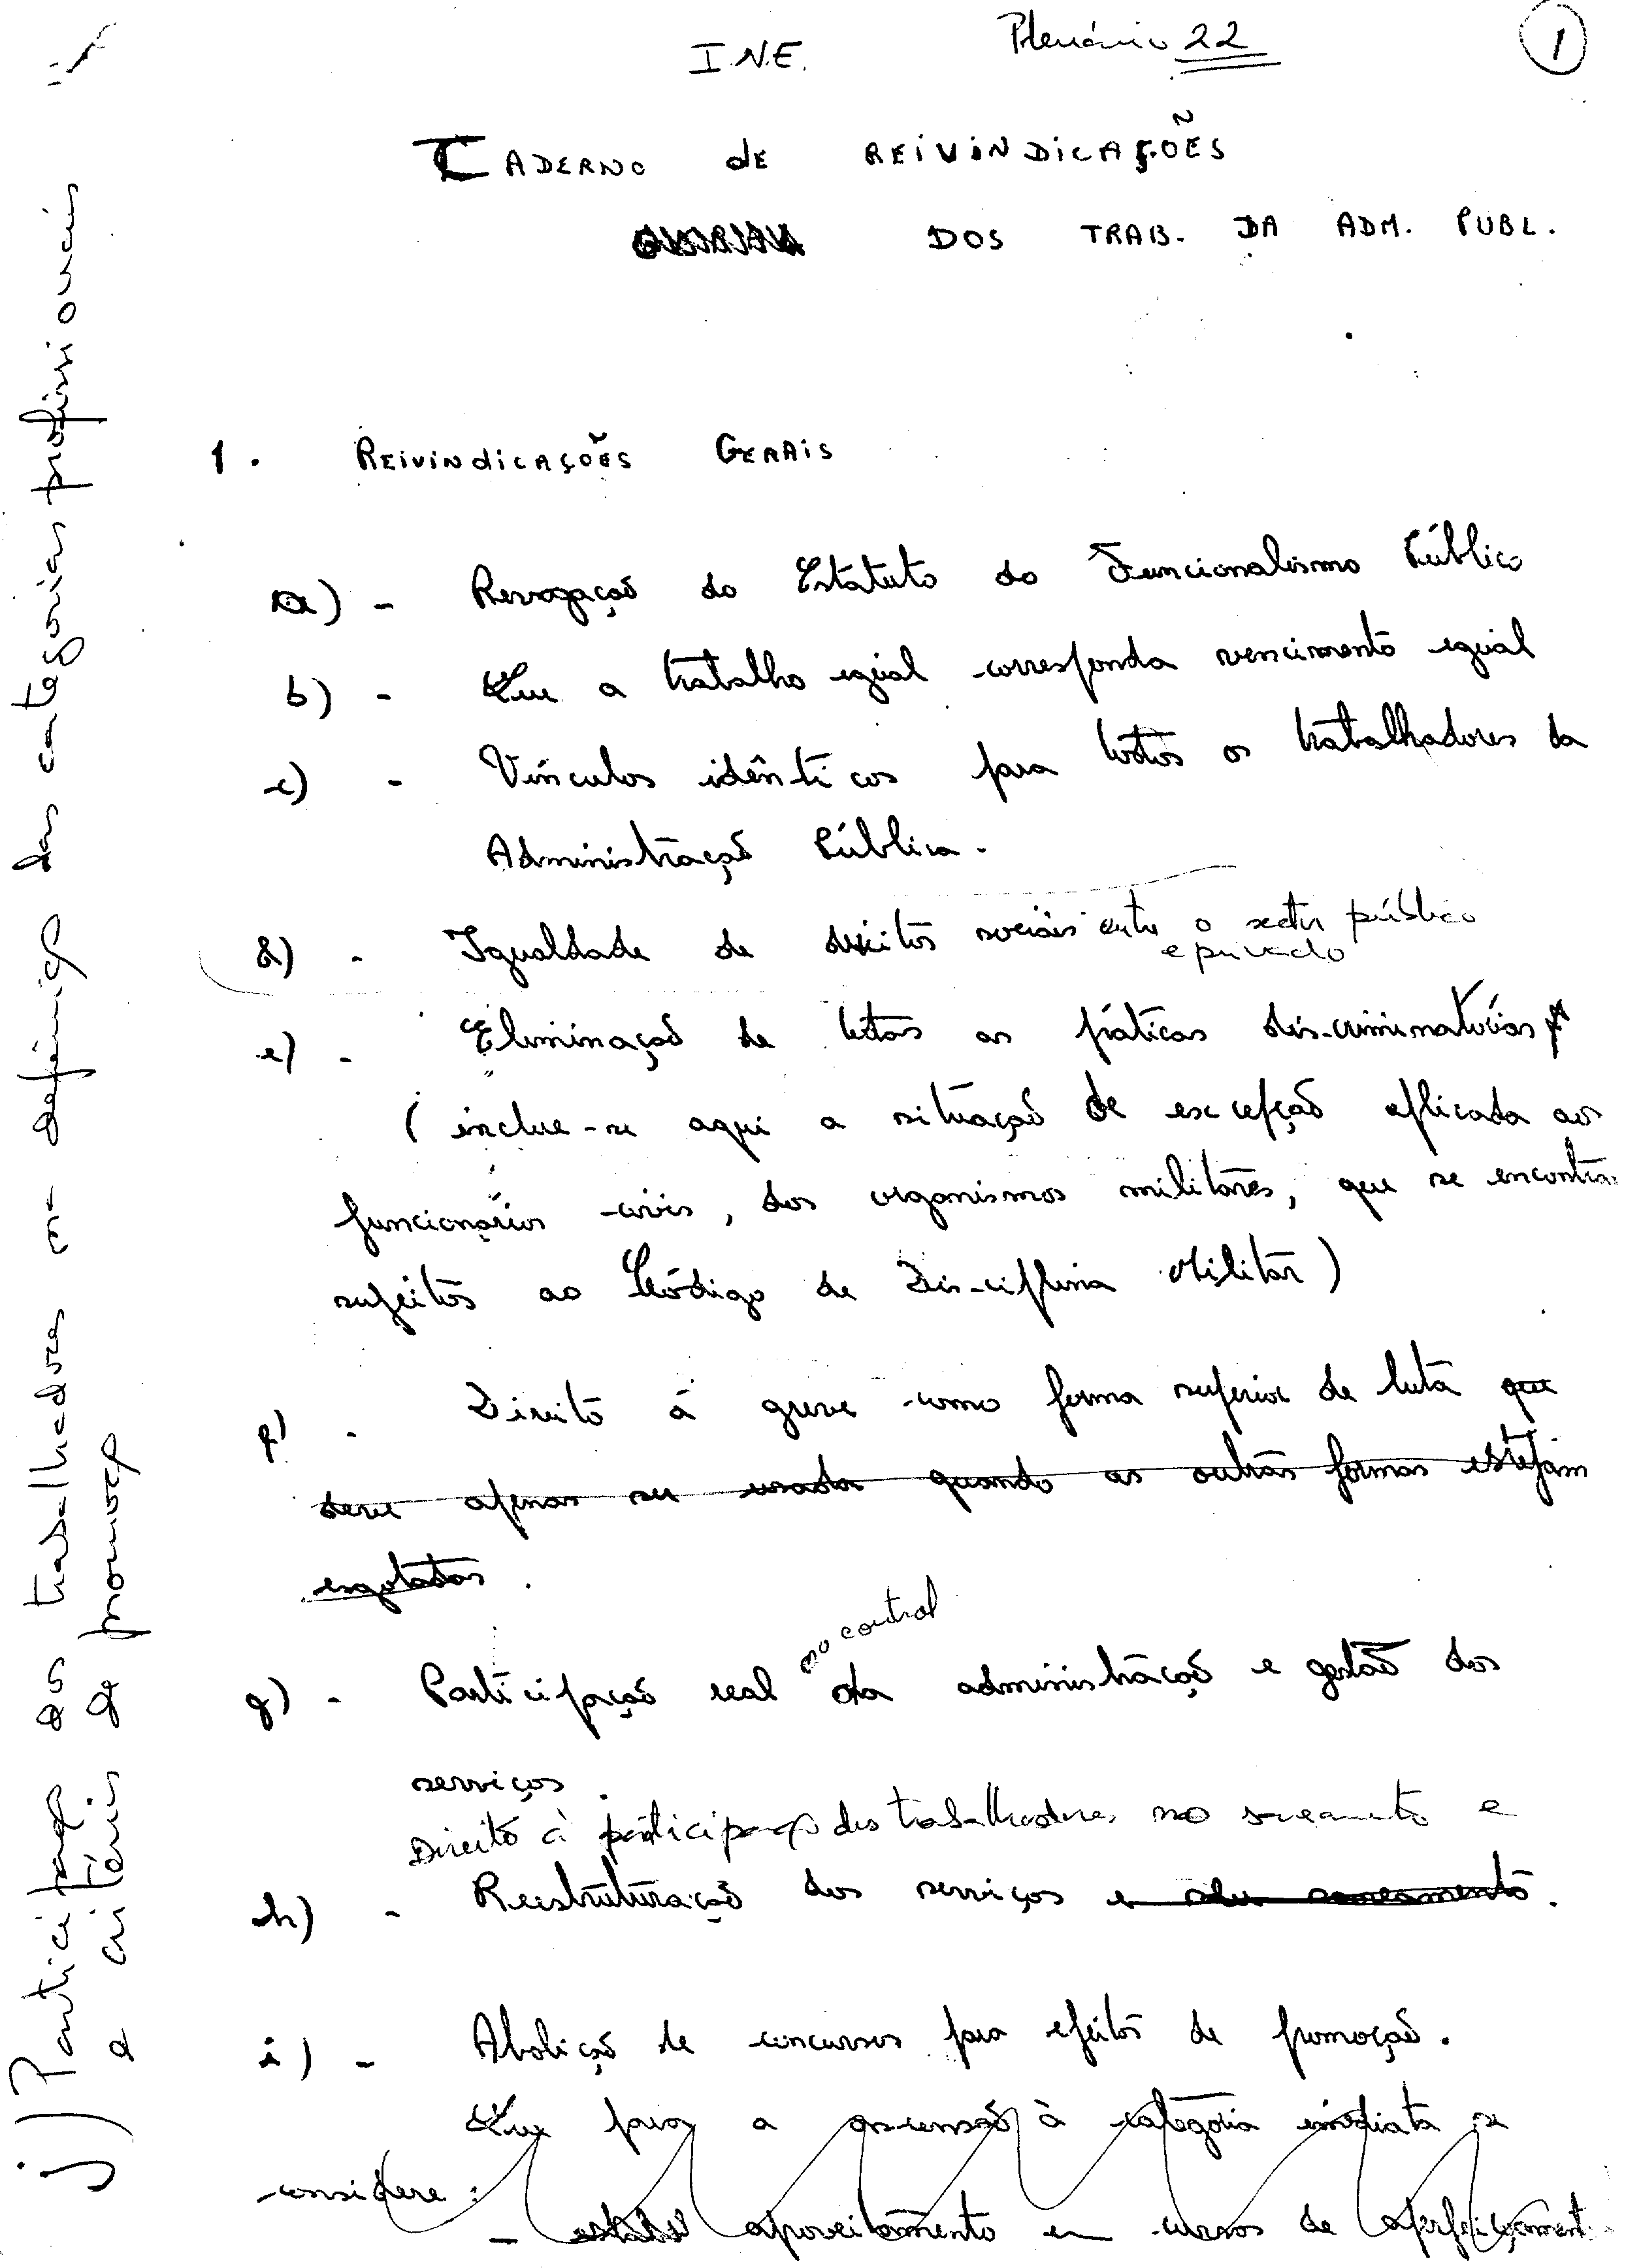 I.N.E.
Plenário 22
1
CADERNO de REIVINDICAÇÕES
DOS TRAB. DA ADM. PUBL.
1. REIVINDICAÇÕES GERAIS
a) - Revogação do Estatuto do Funcionalismo Público
b) - Que a trabalho igual corresponda vencimento igual
c) - Vínculos idênticos para todos os trabalhadores da
Administração Pública.
d) - Igualdade de direitos sociais entre o sector público
e privado
e) - Eliminação de todas as práticas discriminatórias
(inclue-se aqui a situação de excepção aplicada aos
funcionários civis, dos organismos militares, que se encontram
sujeitos ao Código de Disciplina Militar)
f) - Direito à greve como forma superior de luta que
deve apenas ser usada quando as outras formas estejam
esgotadas.
no control
g) - Participação real da administração e gestão dos
serviços.
Direito à participação dos trabalhadores no saneamento e
h) - Reestruturação dos serviços e seu saneamento.
i) - Abolição de concursos para efeitos de promoção.
Que para a ascensão à categoria imediata se
considere:
- aproveitamento em cursos de aperfeiçoament
j) Participação dos trabalhadores na definição das categorias profissionais
e critérios de promoção